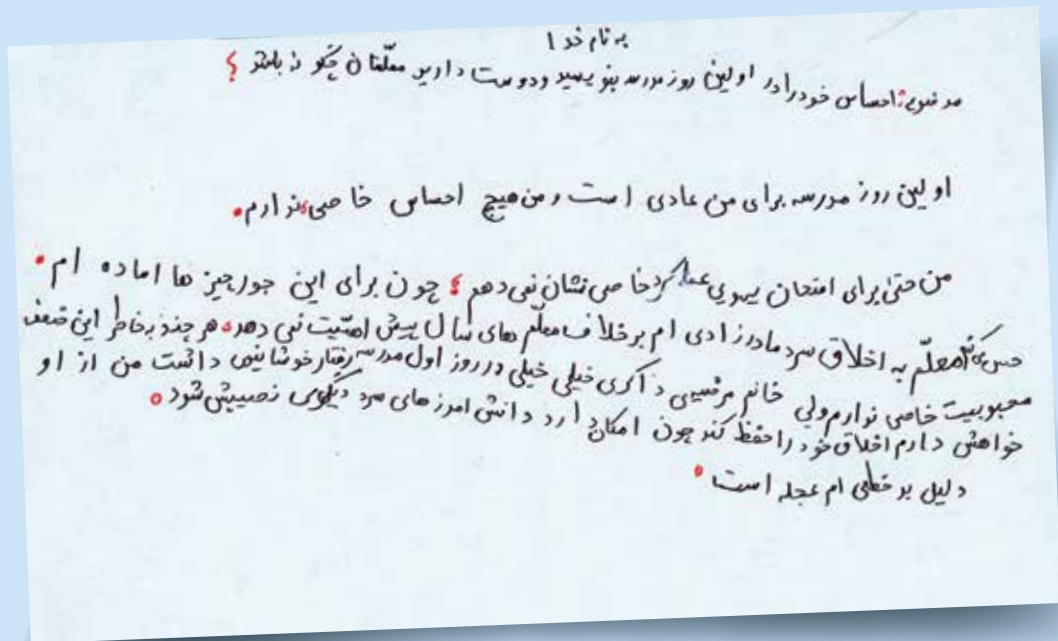 به نام خدا
موضوع: احساس خود را در اولین روز مدرسه بنویسید و دوست دارید معلّمتان چگونه باشد؟
اولین روز مدرسه برای من عادی است و من هیچ احساس خاصی ندارم.
من حتّی برای امتحان یهویی عملکرد خاصی نشان نمی دهم؛ چون برای این جور چیز ها اماده ام.
حس می کنم معلّم به اخلاق سرد مادرزادی ام برخلاف معلّم های سال پیش اهمّیت نمی دهد، هر چند به خاطر این ضعف
محبوبیت خاصی ندارم ولی خانم ذاکری خیلی خیلی در روز اول مدرسه رفتار خوشایندی داشت من از او
خواهش دارم اخلاق خود را حفظ کند چون امکان دارد دانش اموز های سرد دیگری نصیبش شود.
دلیل بد خطی ام عجله است.